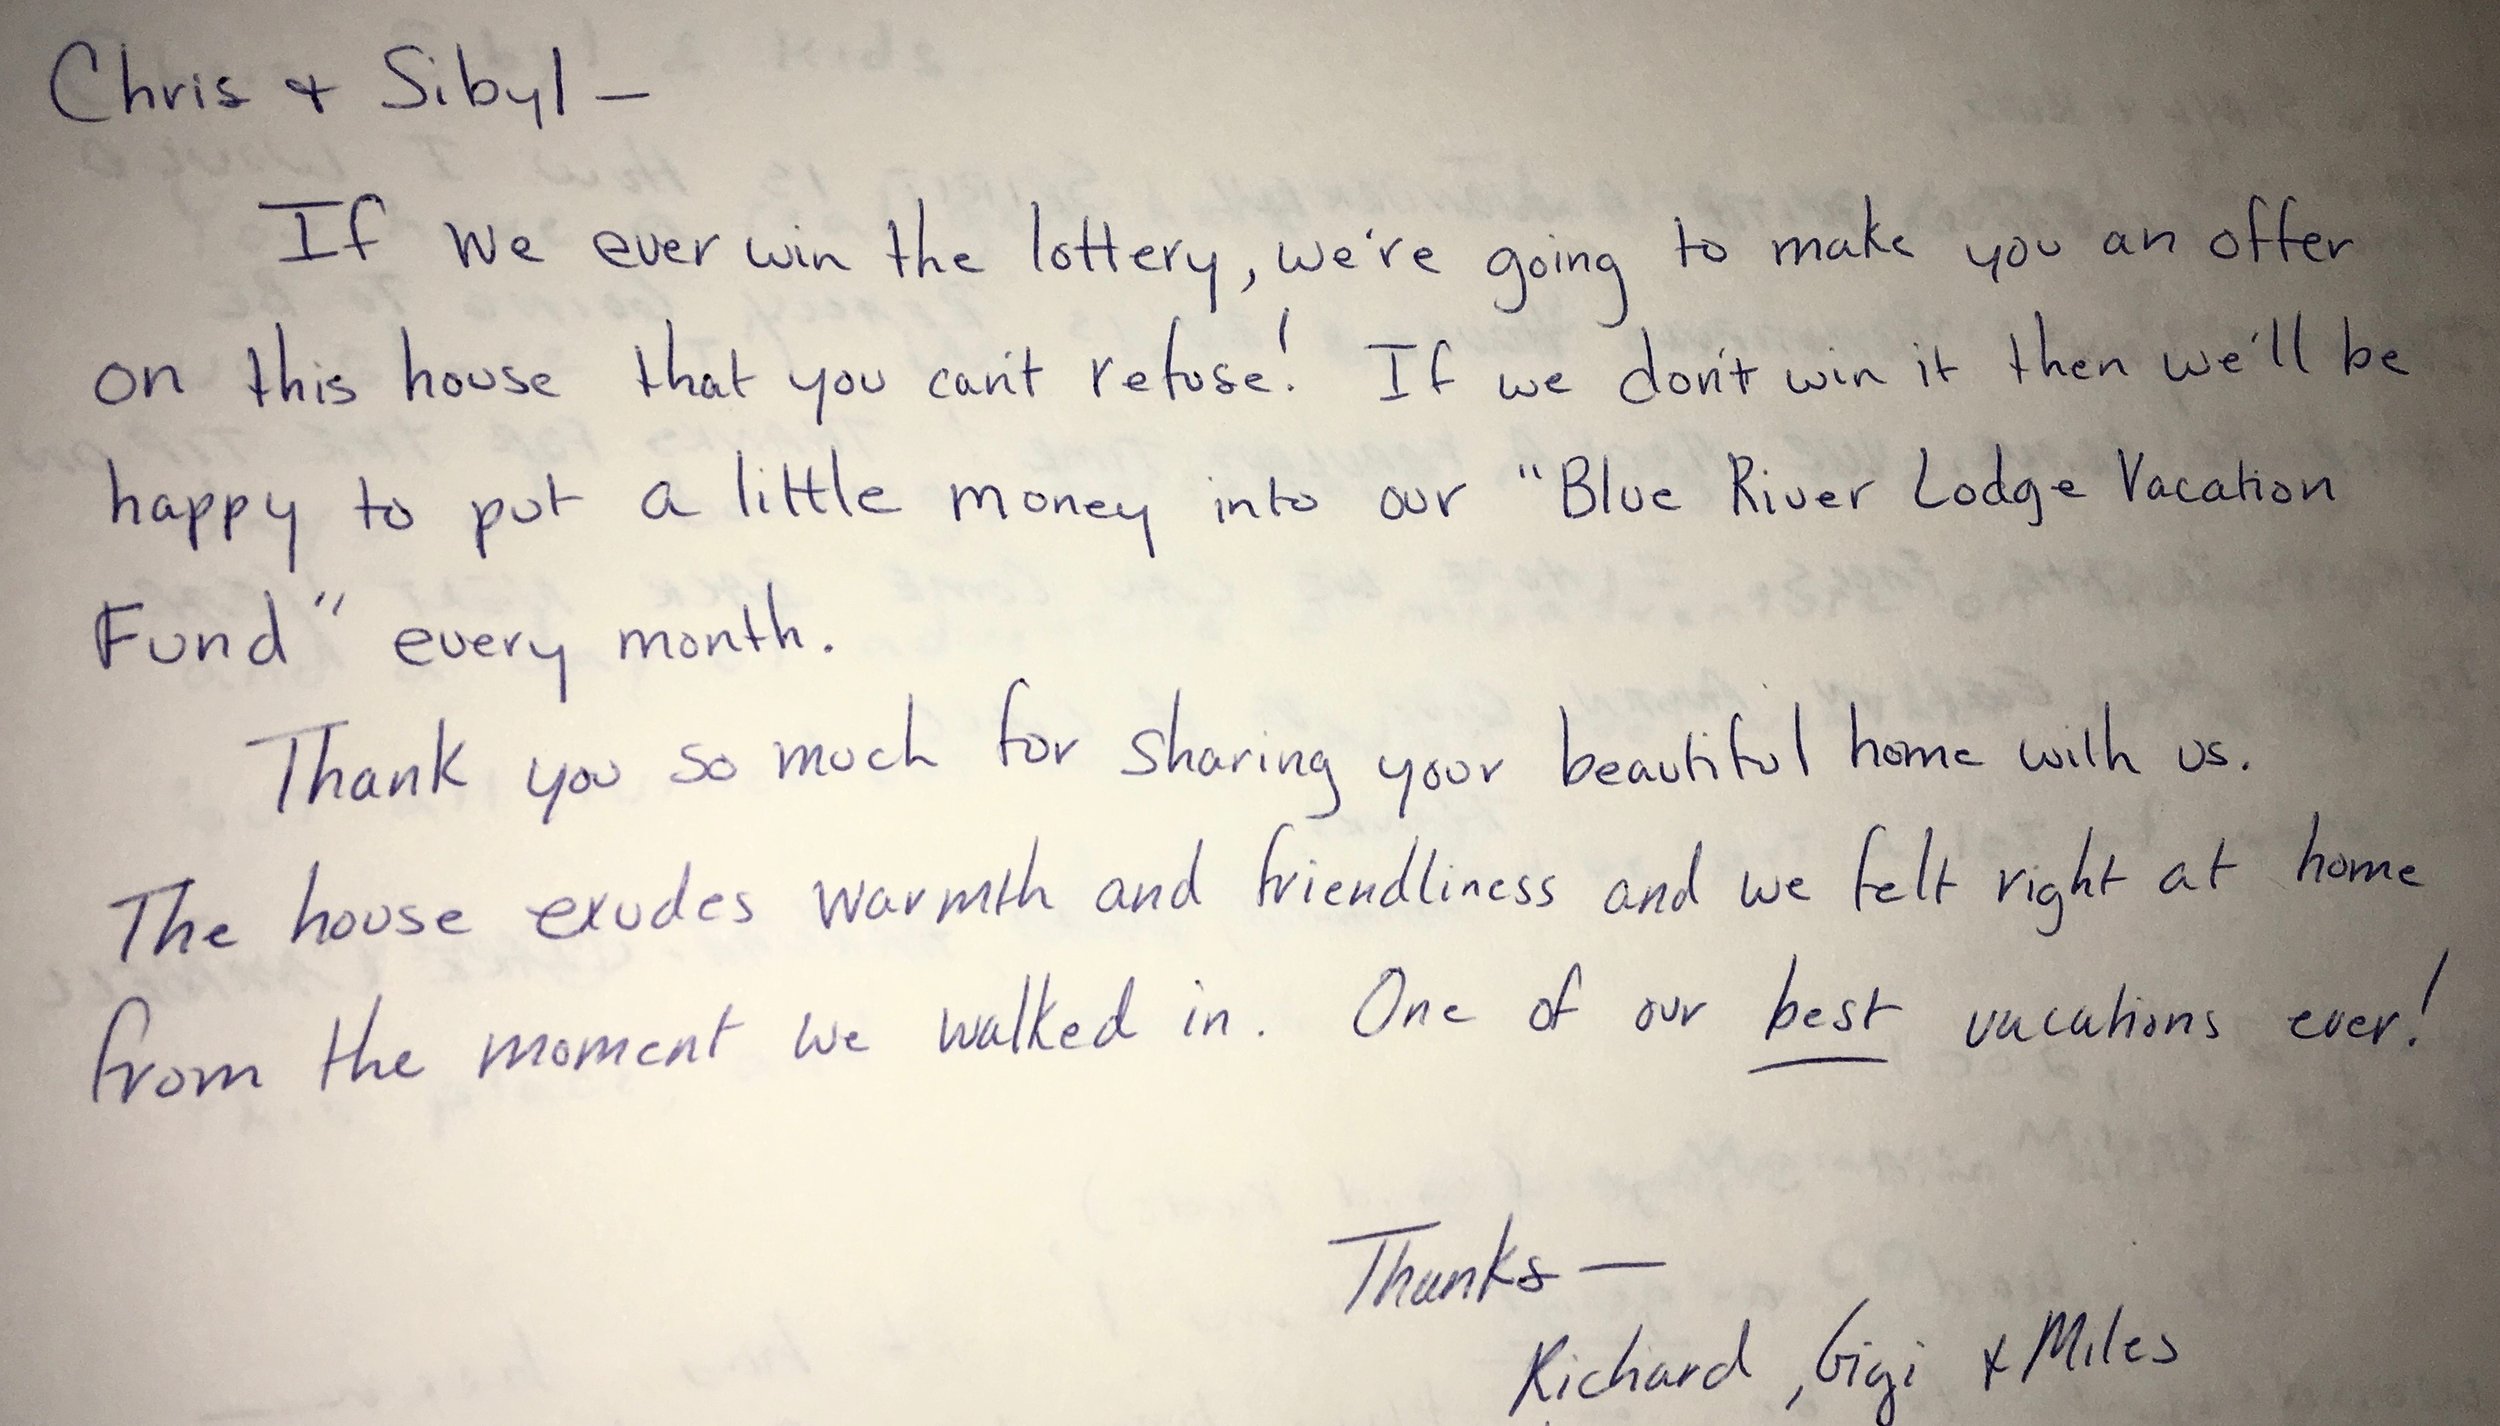 Chris & Sibyl —
If we ever win the lottery, we're going to make you an offer
on this house that you can't refuse! If we don't win it then we'll be
happy to put a little money into our "Blue River Lodge Vacation
Fund" every month.
Thank you so much for sharing your beautiful home with us.
The house exudes warmth and friendliness and we felt right at home
from the moment we walked in. One of our best vacations ever!
Thanks —
Richard, Gigi & Miles